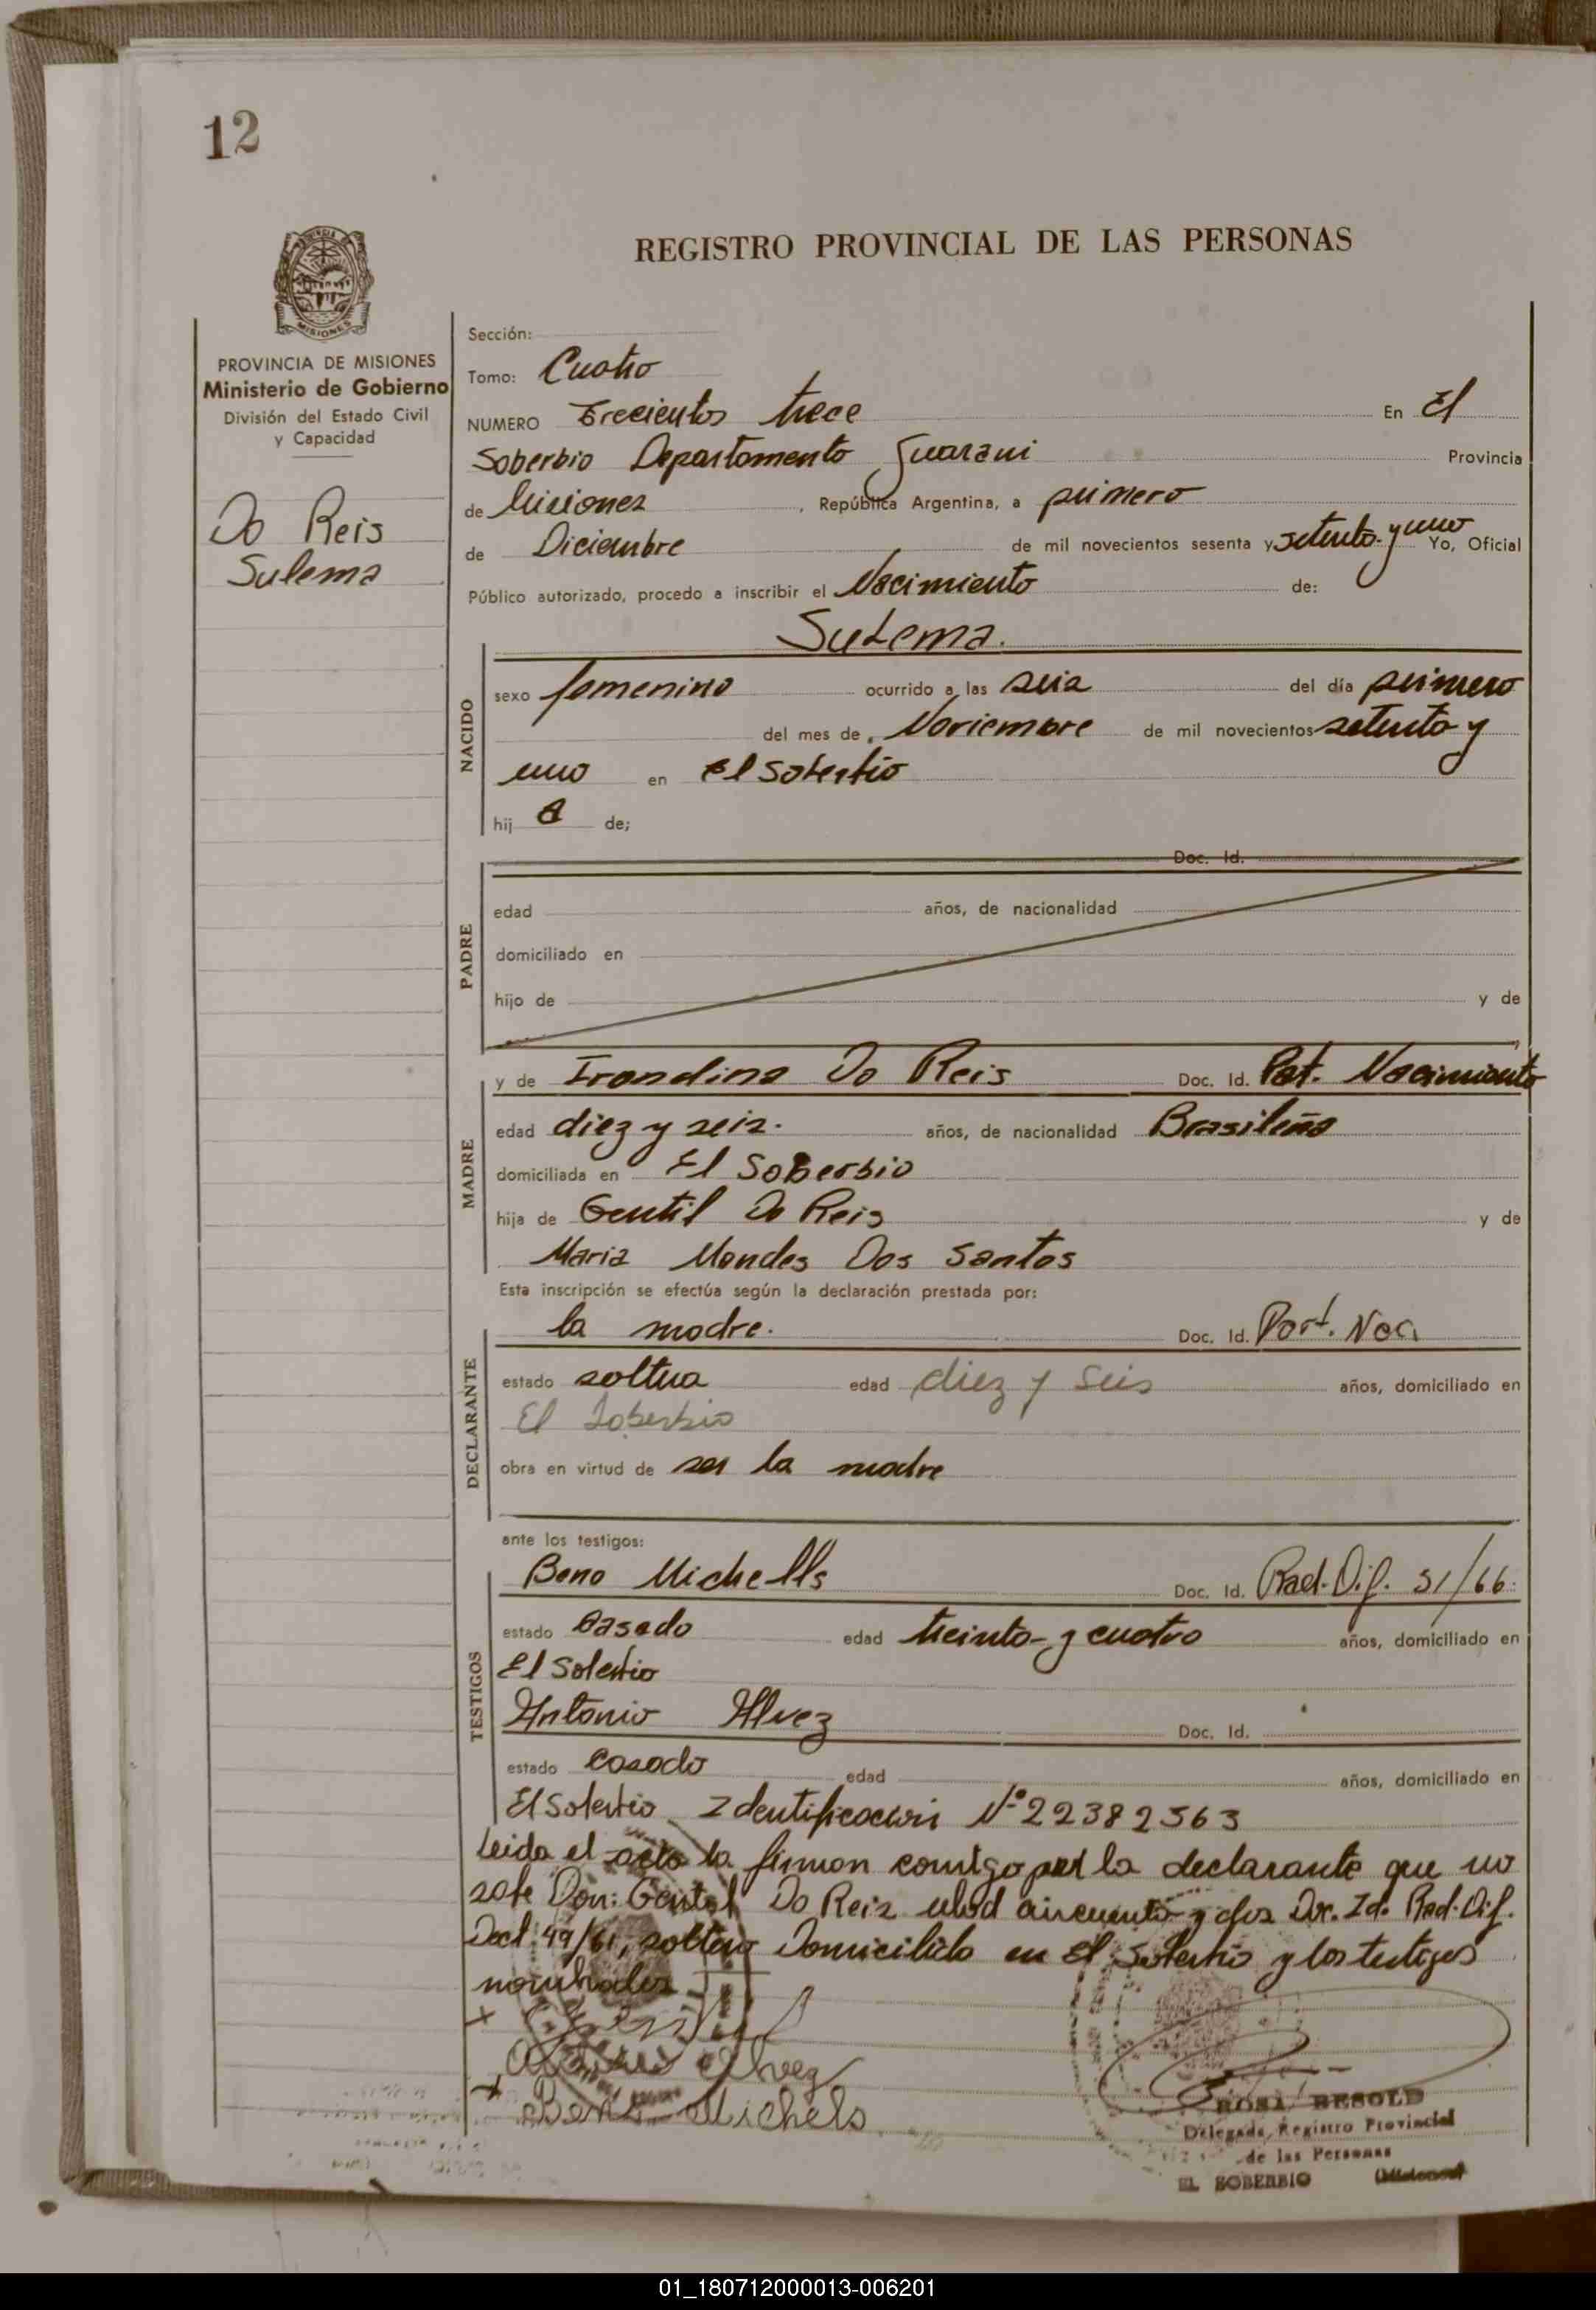 12
REGISTRO PROVINCIAL DE LAS PERSONAS
MISIONES
PROVINCIA DE MISIONES
Ministerio de Gobierno
División del Estado Civil
y Capacidad
Do Reis
Sulema
Sección:
Tomo: Cuatro
NUMERO Trecientos trece En El
Soberbio Departamento Guarani Provincia
de Misiones, República Argentina, a primero
de Diciembre de mil novecientos sesenta y setenta y uno Yo, Oficial
Público autorizado, procedo a inscribir el Nacimiento de:
Sulema.
NACIDO
sexo femenino ocurrido a las seis del día primero
del mes de Noviembre de mil novecientos setenta y
uno en El Soberbio
hij a de;
PADRE
Doc. Id.
edad años, de nacionalidad
domiciliado en
hijo de y de
MADRE
y de Irondina Do Reis Doc. Id. Part. Nacimiento
edad diez y seis. años, de nacionalidad Brasileña
domiciliada en El Soberbio
hija de Gentil Do Reis y de
Maria Mendes Dos Santos
Esta inscripción se efectúa según la declaración prestada por:
DECLARANTE
la madre. Doc. Id. Part. Naci
estado soltera edad diez y seis años, domiciliado en
El Soberbio
obra en virtud de ser la madre
ante los testigos:
TESTIGOS
Beno Michells Doc. Id. Rad. Dif. 51/66.
estado Casado edad treinta y cuatro años, domiciliado en
El Soberbio
Antonio Alvez Doc. Id.
estado casado edad años, domiciliado en
El Soberbio Identificacion Nº 22382563
Leida el acta la firman conmigo por la declarante que no
sabe Don: Gentil Do Reis edad cincuenta y dos Doc. Id. Rad. Dif.
Decl. 49/61, soltero Domicilido en El Soberbio y los testigos
nombrados
Alvez
Beno Michels
ROSA BESOLD
Delegada, Registro Provincial
de las Personas
EL SOBERBIO (Misiones)
01_180712000013-006201